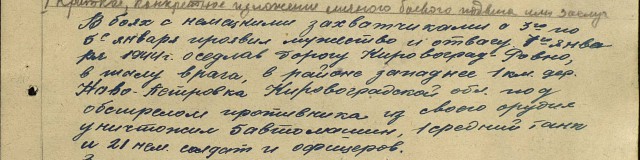 Краткое, конкретное изложение личного боевого подвига или заслуг
В боях с немецкими захватчиками с 3го по
6е января проявил мужество и отвагу. 7го янва
ря 1944г. оседлав дорогу Кировоград-Ровно,
в тылу врага, в районе западнее 1 км. дер.
Ново-Петровка Кировоградской обл. под
обстрелом противника из своего орудия
уничтожил 5 автомашин, 1 средний танк
и 21 нем. солдат и офицеров.